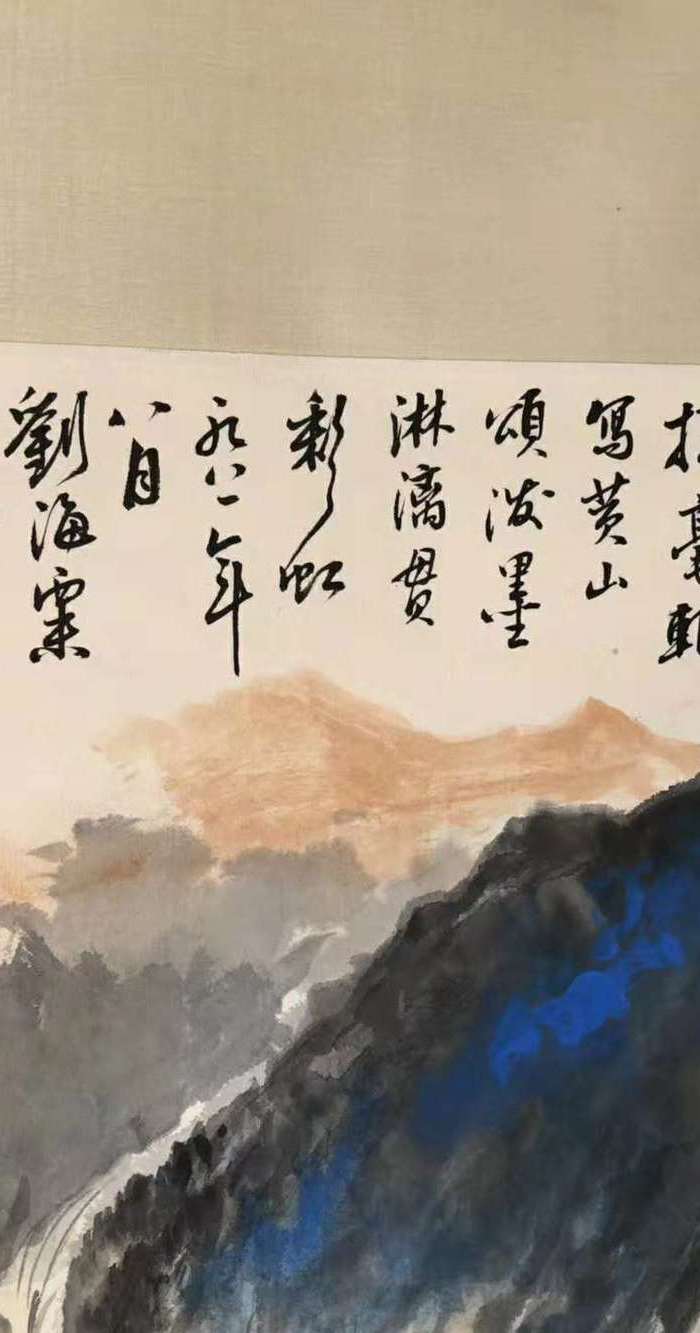 毫
寫黄山
頌泼墨
淋漓貫
彩虹
九八一年
八月
劉海粟